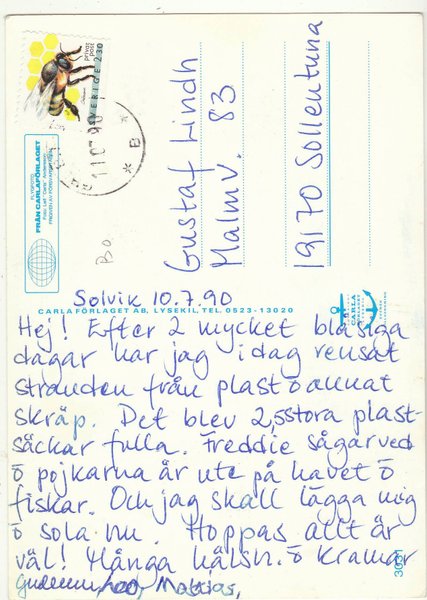 privat post
SVERIGE 2.30
FLYGFOTO
FRÅN CARLAFÖRLAGET
Gustaf Lindh
Malmv. 83
19170 Sollentuna
Bo
Solvik 10.7.90
CARLA FÖRLAGET AB, LYSEKIL, TEL. 0523-13020
CARLA
Hej! Efter 2 mycket blåsiga
dagar har jag idag rensat
stranden från plast o annat
skräp. Det blev 2,5 stora plast-
säckar fulla. Freddie sågar ved
o pojkarna är ute på havet o
fiskar. Och jag skall lägga mig
o sola nu. Hoppas allt är
väl! Många hälsn. o kramar
Mattias,
3031